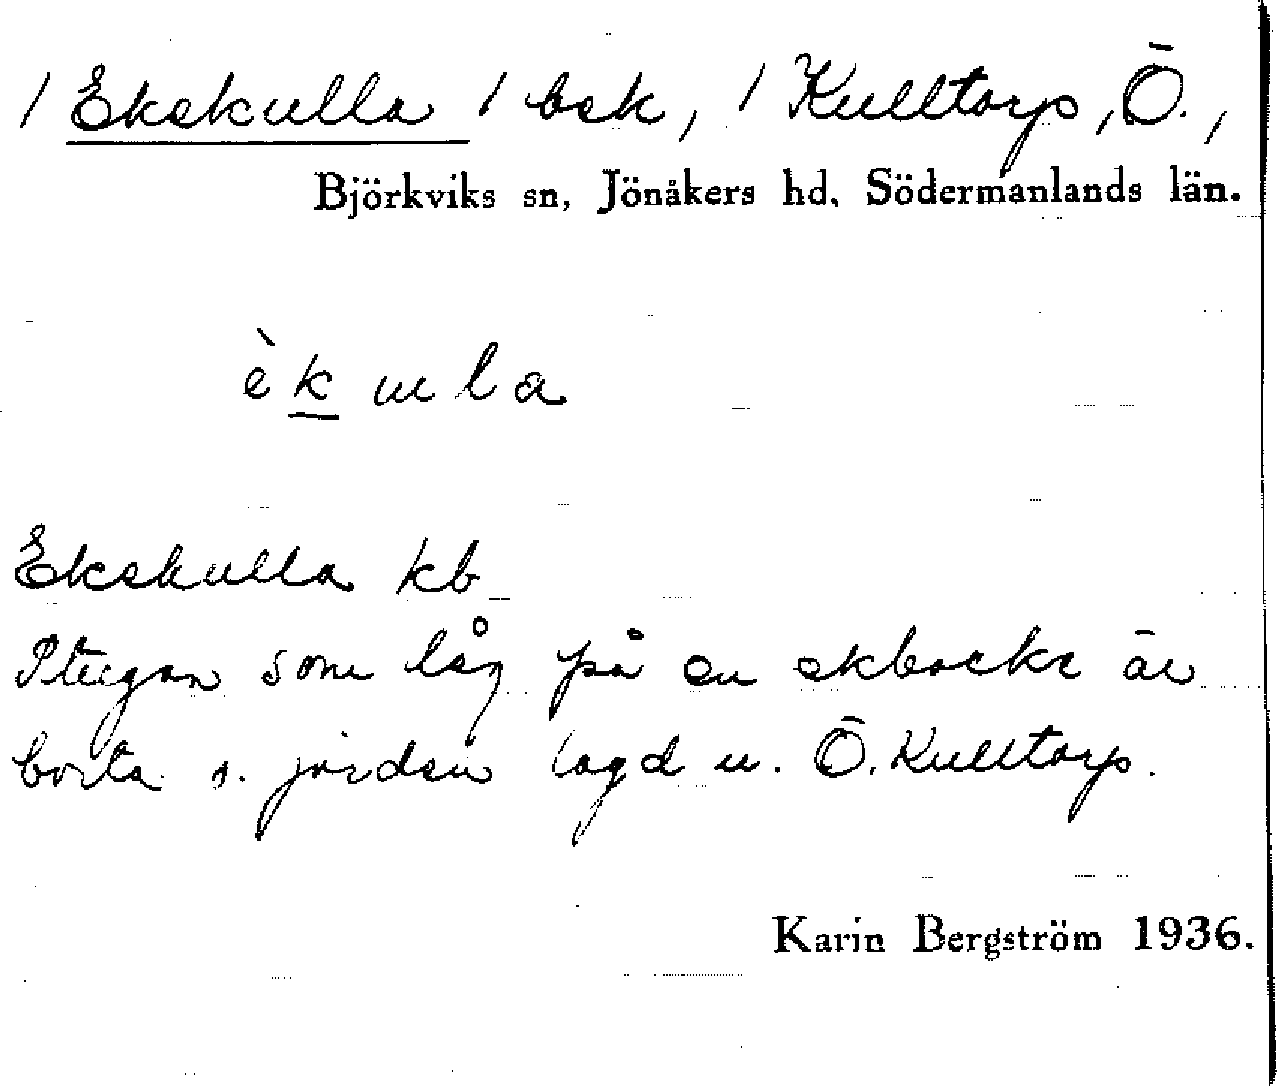 / Ekskulla / bsk, / Kulltorp, Ö.,
Björkviks sn, Jönåkers hd, Södermanlands län.
è k u l a
Ekskulla kb
Stugan som låg på en ekbacke är
borta o. jorden lagd u. Ö. Kulltorp.
Karin Bergström 1936.